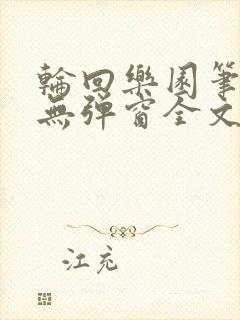 輪回樂園筆
無彈窗全文
江充